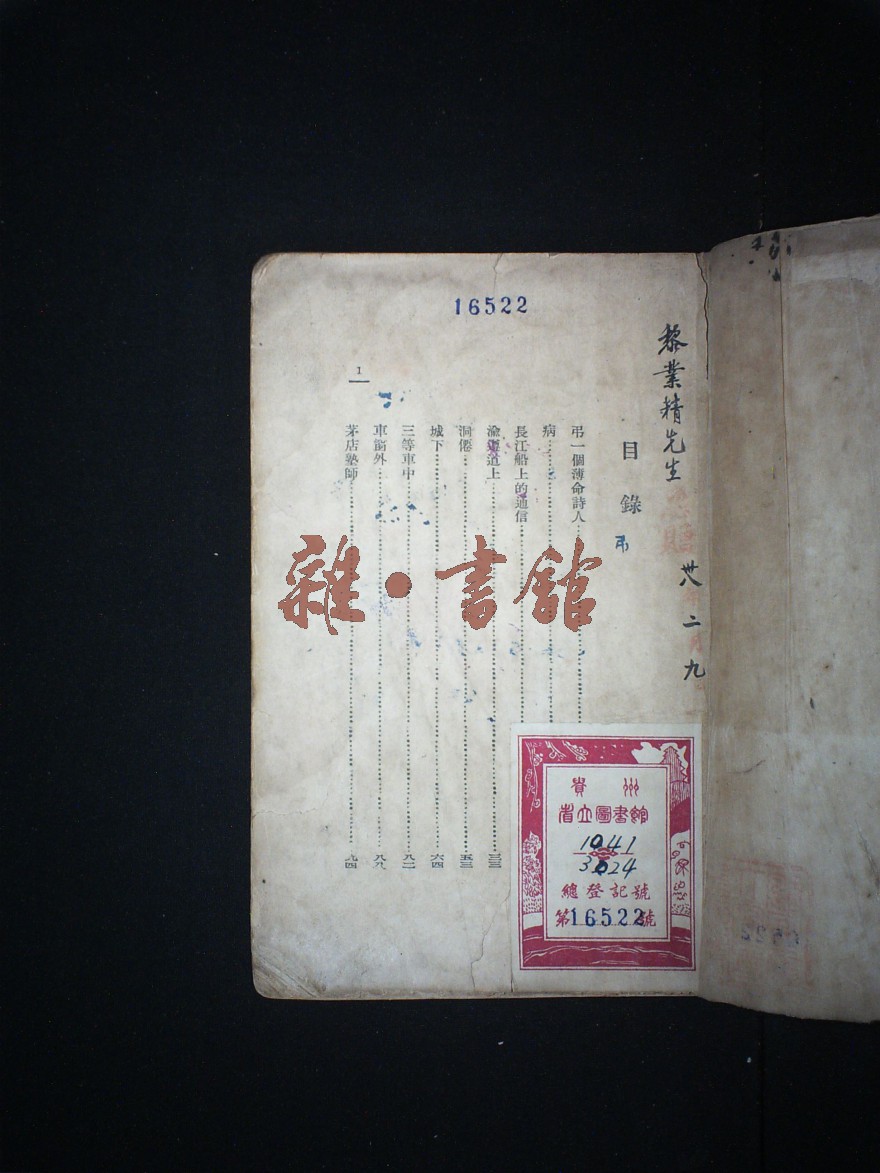 16522
黎業精先生
卅八 二 九
目錄
吊
弔一個薄命詩人
病
長江船上的通信
渝 道上 三三
洞僊 五三
城下 六四
三等車中 八二
車窗外 八八
茅店塾師 九四
1
雜·書館
貴州
省立圖書館
1041
3024
總登記號
第16522號